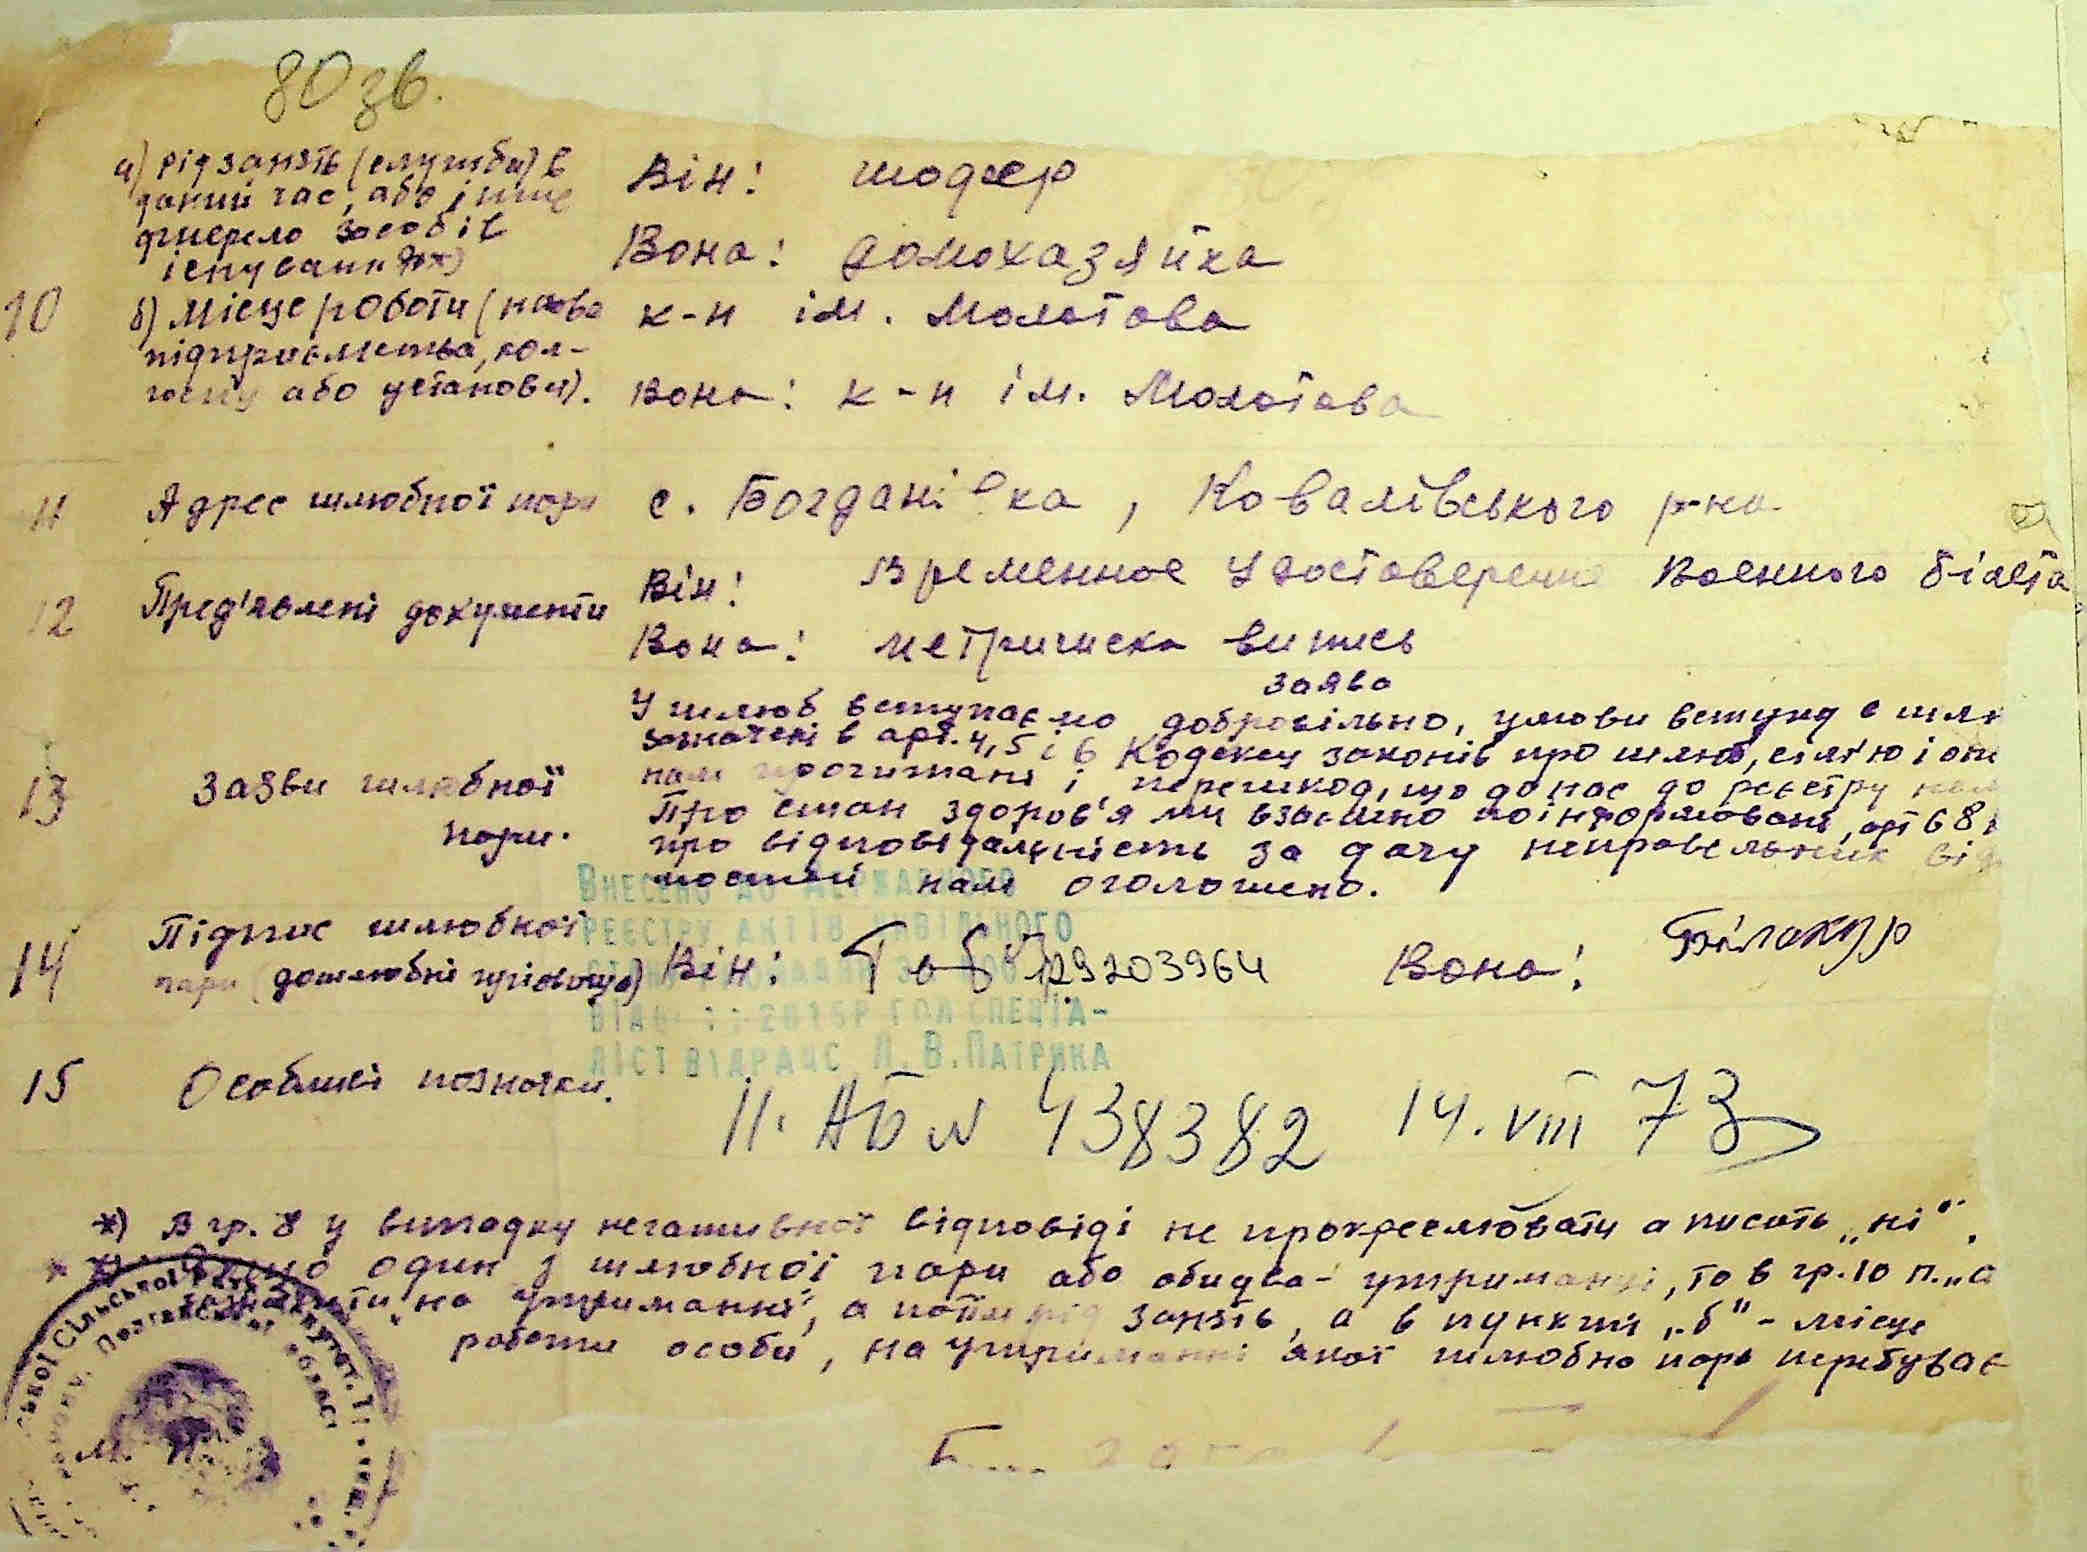 80 зв.
а) рід занять (служби) в
даний час, або інше
джерело засобів
існування **)
Він: шофер
Вона: домохазяйка
10
б) Місце роботи (назва
підприємства, кол-
госпу або установи).
к-п ім. Молотова
Вона: к-п ім. Молотова
11 Адрес шлюбної пари с. Богданівка, Ковалівського р-на
12 Пред'явлені документи Він: Временное удостоверение Военного білета
Вона: метрическа випись
заява
13 Заяви шлюбної
пари.
У шлюб вступаємо добровільно, умови вступу в шлю
зазначені в арт. 4, 5 і 6 Кодексу законів про шлюб, сім'ю і опі
нам прочитані і перешкод, що до нас до реєстру нем
Про стан здоров'я ми взаємно поінформовані, арт 68
про відповідальність за дачу неправельних від
мостей нам оголошено.
ВНЕСЕНО ДО ДЕРЖАВНОГО
РЕЄСТРУ АКТІВ ЦИВІЛЬНОГО
14 Підпис шлюбної
пари (дошлюбні прізвища) Він: 129203964 Вона: Білокур
2016Р ГОЛ СПЕЦІА-
ЛІСТ ВІДРАЦС Л.В.ПАТРИКА
15 Особливі позначки.
ІІ. АБ № 438382 14.VIII 73
*) В гр. 8 у випадку негативної відповіді не прокреслювати а писать „ні".
один з шлюбної пари або обидва - утриманці, то в гр. 10 п. „а
зазначити „на утриманні", а потім рід занять, а в пункті „б" - місце
работи особи, на утриманні якої шлюбна пара перебуває
М. П.